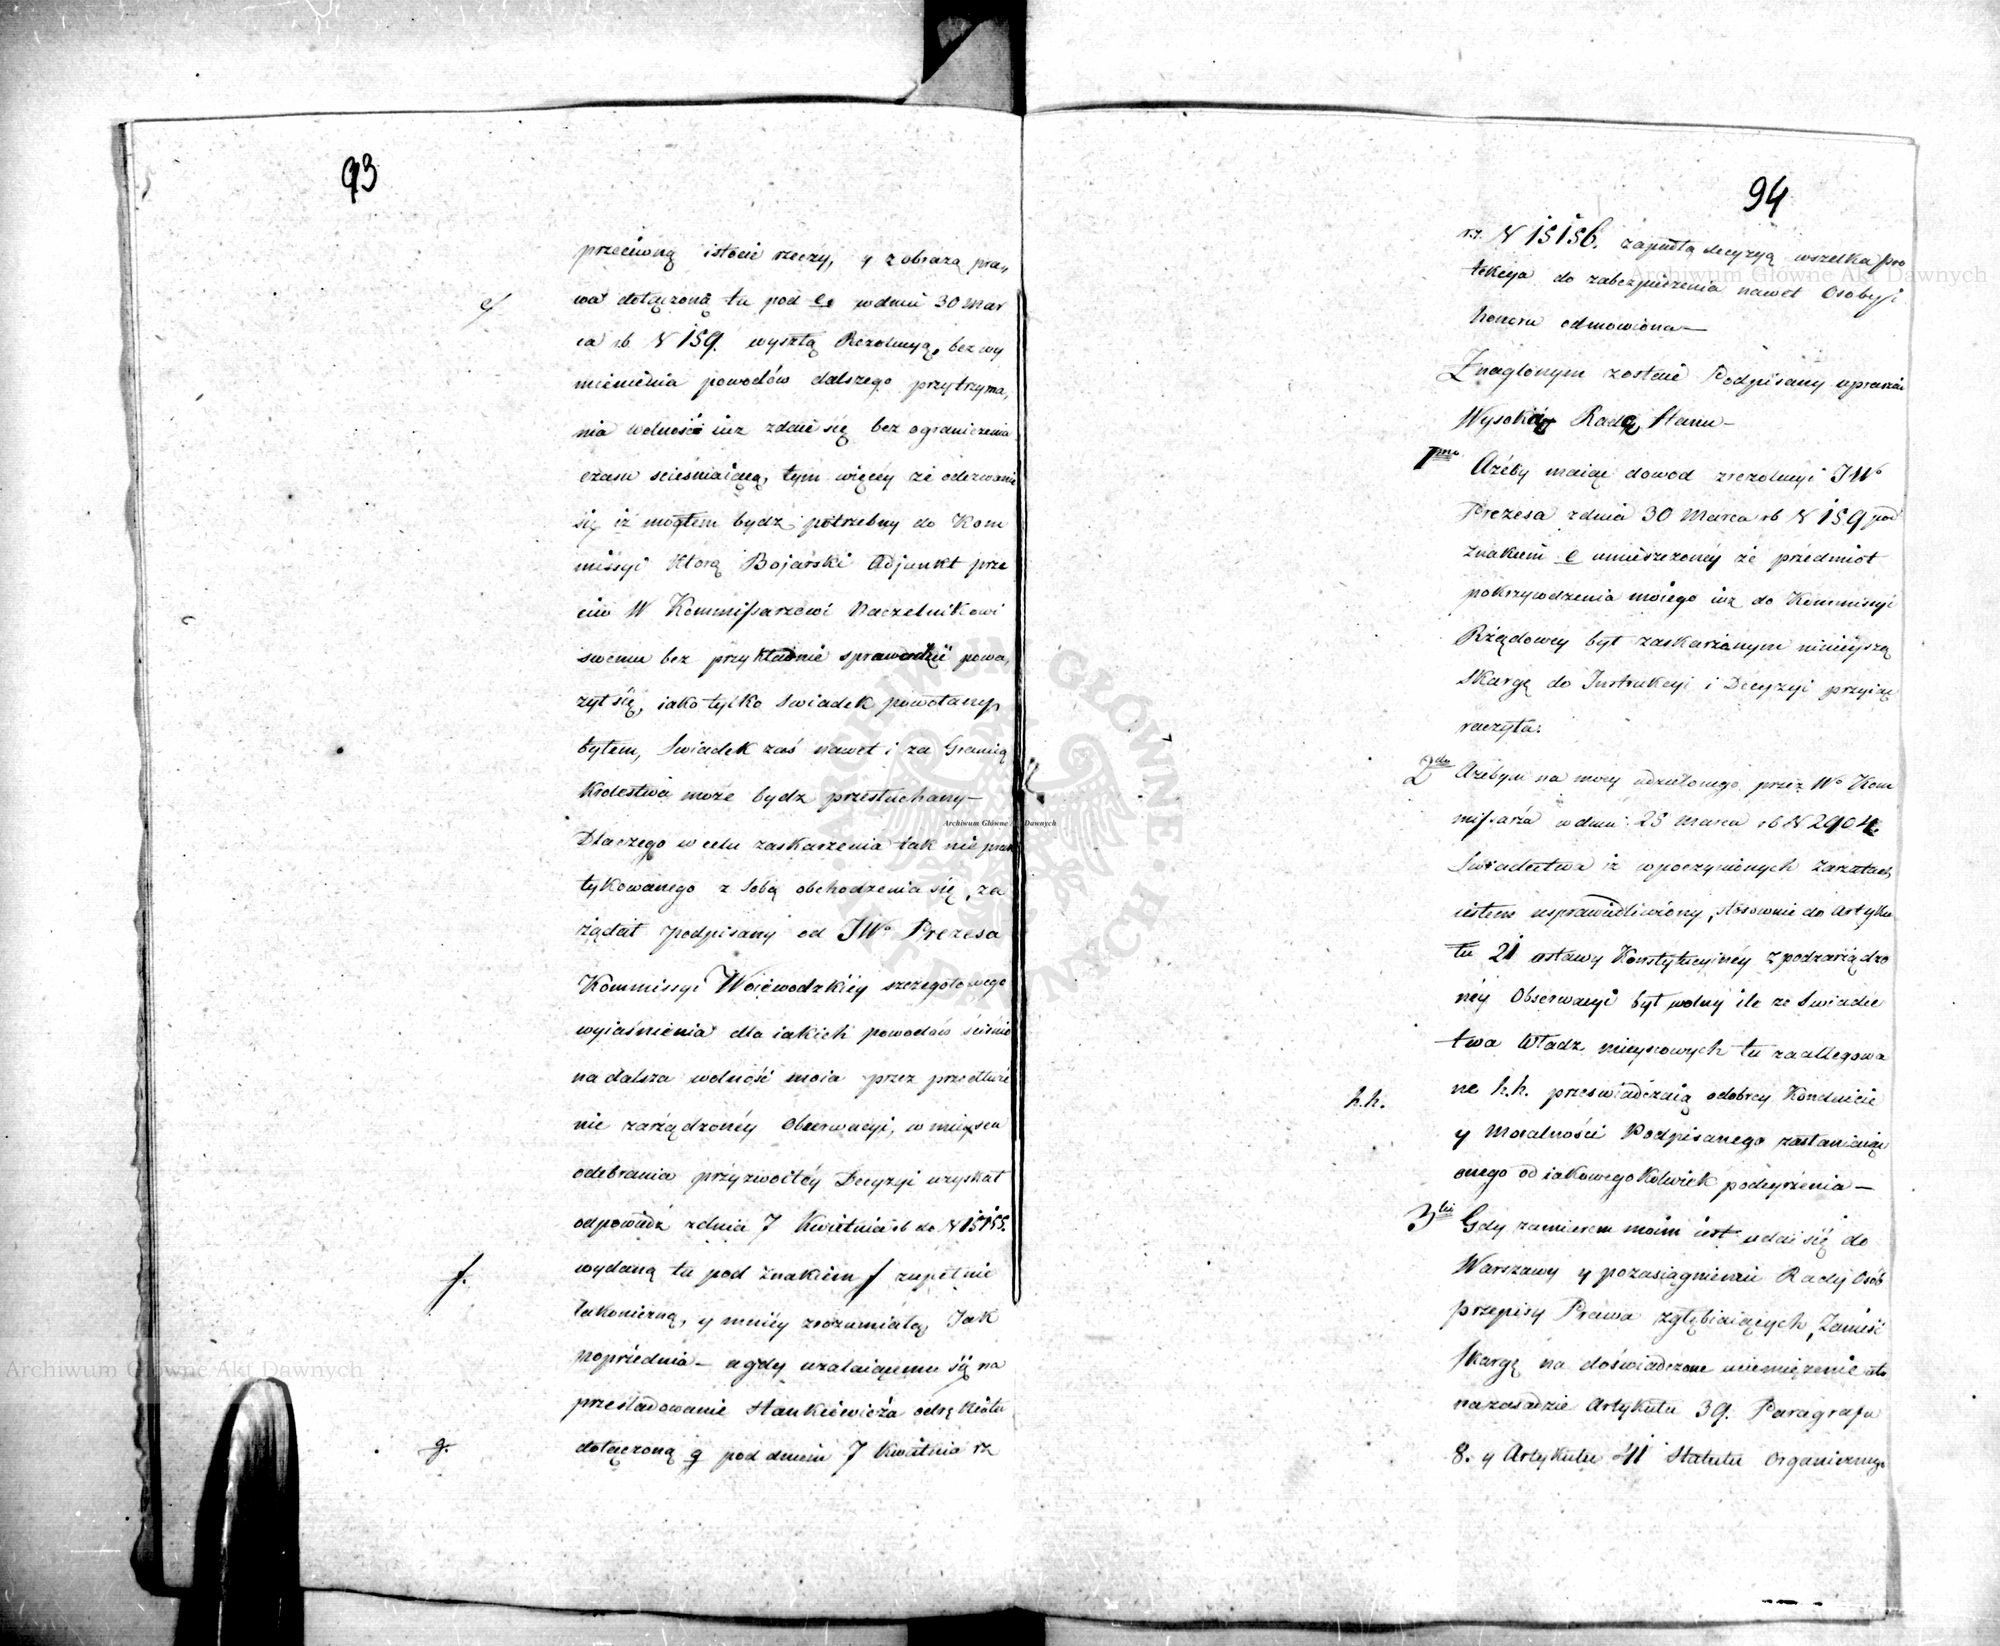 93
przeciwną istocie rzeczy, y z obrazą pra,
wa dołączoną tu pod e. w dniu 30 Mar
e/
ca rb. N 159. wyszłą Rezolucyą, bez wy
mienienia powodów dalszego przytrzyma,
nia wolności iuz zdaie się bez ograniczenia
czasu scieśniaiącą, tym więcey że odezwanie
się iż mogłem bydz potrzebny do Kom
missyi którą Bojarski Adjunkt prze
ciw W Kommissarzowi Naczelnikowi
swemu bez przykładnie sprawadzić powa,
żył się, iako tylko Swiadek powołany
byłem, Swiadek zaś nawet i za Granicą
Krolestwa może bydz przesłuchany—
Dla czego w celu zaskarzenia tak nie prak
tykowanego z sobą obchodzenia się, za
rządał podpisany od JWo Prezesa
Kommissyi Woiewodzkiey szczegołowego
wyiaśnienia dla iakich powodów ścieśnio
na dalsza wolność moia przez przedłuże
nie zarządzoney Obserwacyi, w mieyscu
odebrania przyzwoitéy Decyzyi uzyskał
odpowiedz z dnia 7 Kwietnia rb do N 15155.
wydaną tu pod znakiem f zupełnie
f.
lakoniczną, y mniey zrozumiałą Jak
poprzednia— a gdy uzalaiącemu się na
prześladowanie Stankiewicza odezwa
dołączoną g pod dniem 7 Kwietnia rz
g.
94
rz. N 15156. zapadłą decyzyą wszelka pro
tekcya do zabezpieczenia nawet Osoby i
honoru odmowiona—
Znaglonym zostaie Podpisany upraszac
Wysoką Radę Stanu—
1mo Ażeby maiąc dowod z rezolucyi JWo
Prezesa z dnia 30 Marca rb N 159 pod
znakiem e umieszczoney że przedmiot
pokrzywdzenia moiego iuz do Kommissyi
Rządowey był zaskarzonym ninieyszą
Skargę do Instrukcyi i Decyzyi przyiąć
raczyła.
2do Ażebym na mocy udzielonego przez Wo Kom
missarza w dniu 23 Marca rb N 2904.
Swiadectwa iż w poczynionych Zarzutach
iestem usprawiedliwiony, stosownie do Artyku
łu 21 ustawy Konstytucyinéy z podzarządzo
néy Obserwacyi był wolny ile że Swiadec
twa Władz mieyscowych tu zaallegowa
ne h.h. przeswiadczaią o dobrey Konduicie
h.h.
y Moralności Podpisanego zasłaniaiąc
onego od iakowego kolwiek podeyrzenia—
3tio Gdy zamiarem moim iest udać się do
Warszawy y po zasiągnieniu Rady Osób
przepisy Prawa zgłębiaiących, Zanieść
skargę na doświadczone uciemiężenie
na zasadzie Artykułu 39. Paragrafu
8. y Artykułu 41 Statutu Organicznego